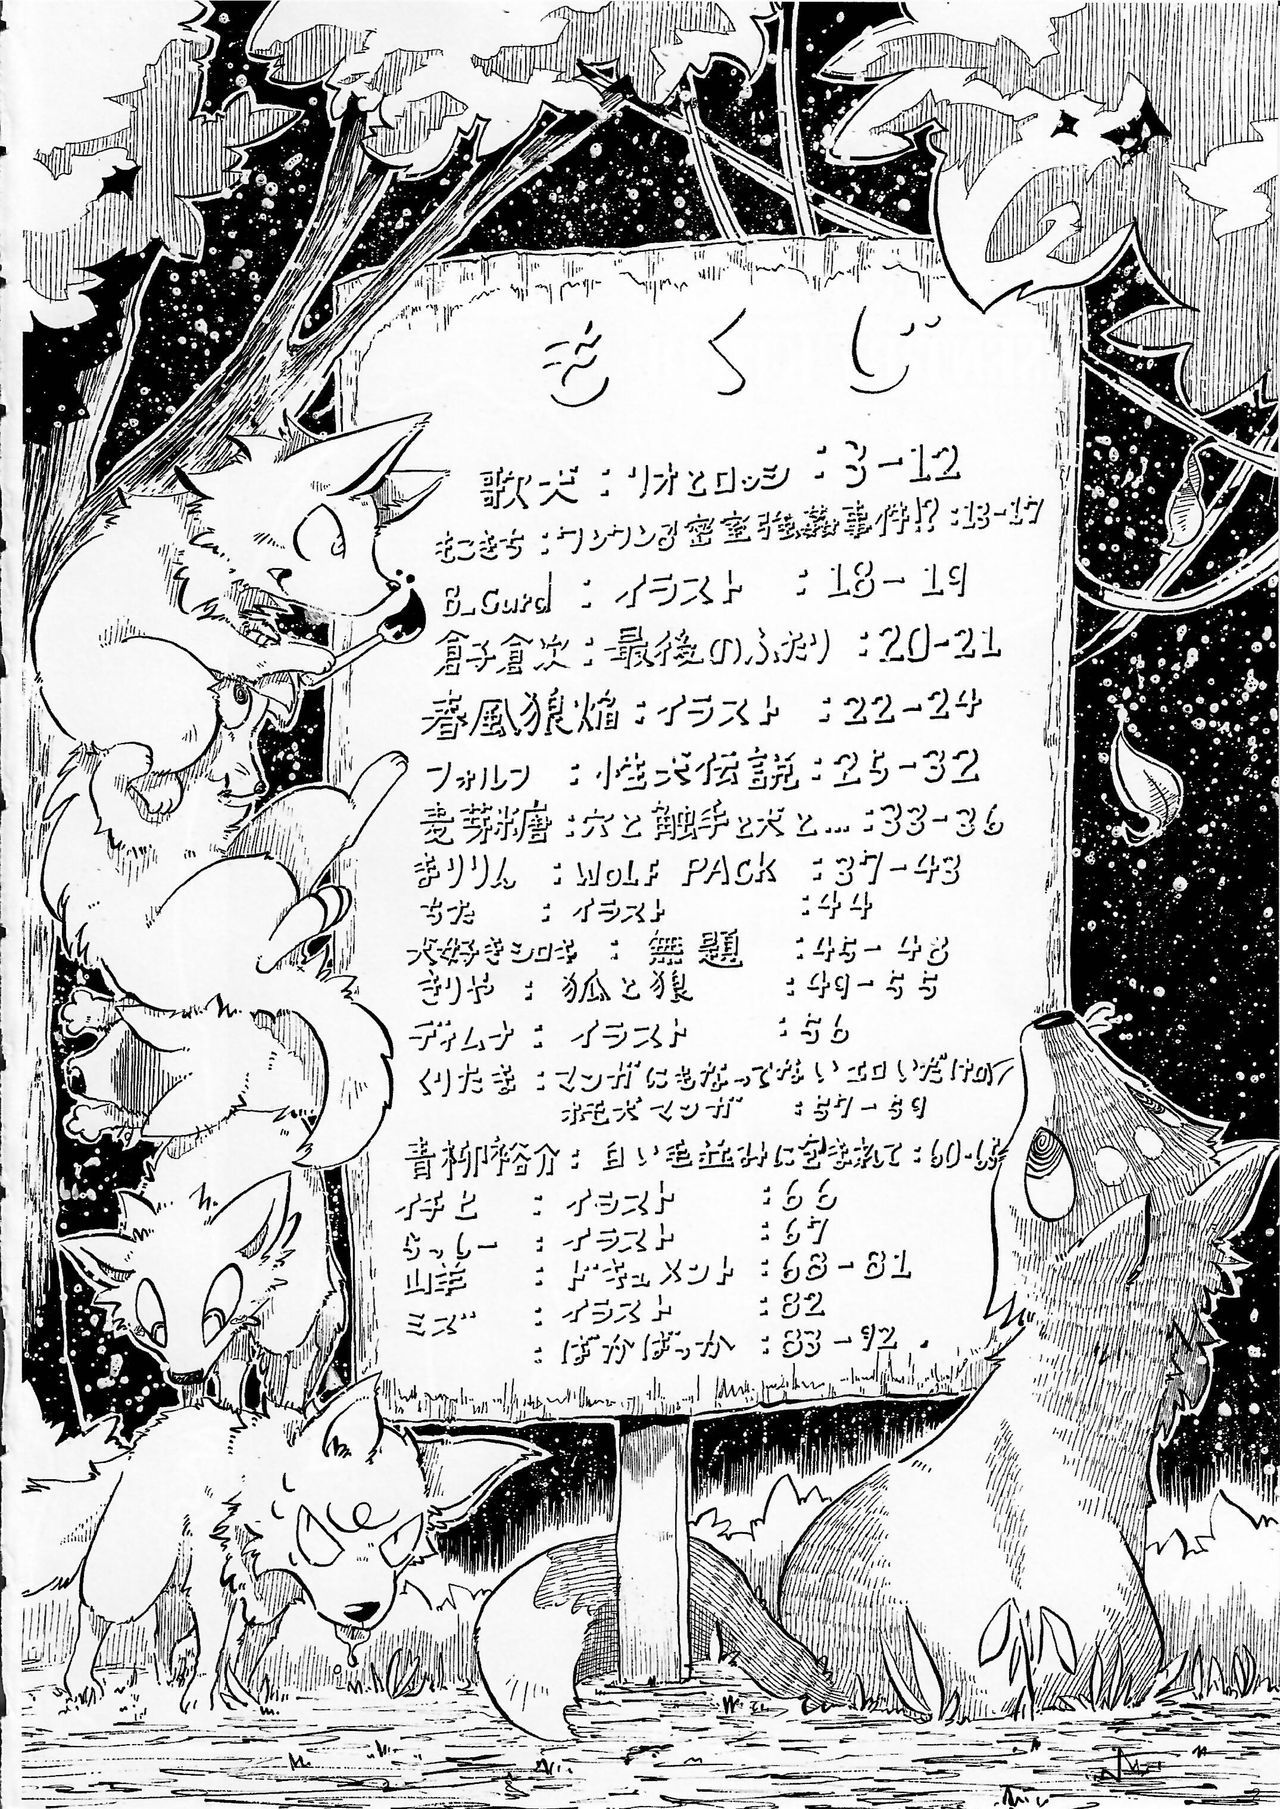 もくじ
歌犬：リオとロッシ：3-12
もこきち：ワンワン♂密室強姦事件!?：13-17
B_Curd：イラスト：18-19
倉子倉次：最後のふたり：20-21
春風狼焔：イラスト：22-24
フォルフ：性犬伝説：25-32
麦芽糖：穴と触手と犬と…：33-36
まりりん：WOLF PACK：37-43
ちた：イラスト：44
犬好きシロキ：無題：45-48
きりや：狐と狼：49-55
ディムナ：イラスト：56
くりたま：マンガにもなってないエロいだけの
ホモ犬マンガ：57-59
青柳裕介：白い毛並みに包まれて：60-65
イチヒ：イラスト：66
らっしー：イラスト：67
山羊：ドキュメント：68-81
ミズ：イラスト：82
：ばかばっか：83-92